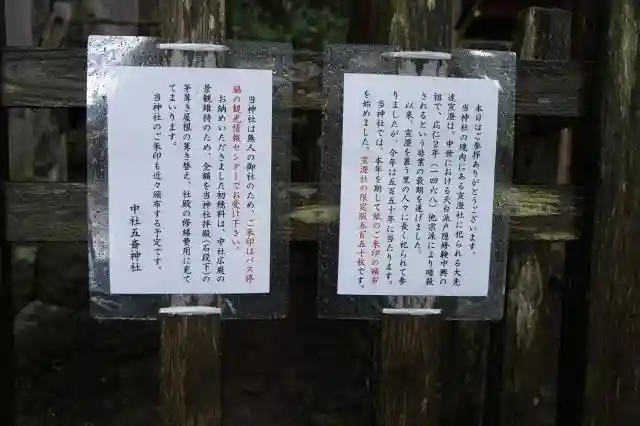 本日はご参拝ありがとうございます。
当神社の境内にある宣澄社に祀られる大先
達宣澄は、中世における天台派戸隠修験中興の
祖で、応仁２年（一四六八）他宗派により暗殺
されるという悲業の最期を遂げました。
以来、宣澄を慕う里の人々に長く祀られて参
りましたが、今年は五百五十年に当たります。
当神社では、本年を期して紙のご朱印の頒布
を始めました。宣澄社の限定版五百五十枚です。
当神社は無人の御社のため、ご朱印はバス停
脇の観光情報センターでお受け下さい。
お納めいただきました初穂料は、中社広庭の
景観維持のため、全額を当神社拝殿（石段下）の
茅葺き屋根の葺き替え、社殿の修繕費用に充て
てまいります。
当神社のご朱印も近々頒布する予定です。
中社五斎神社